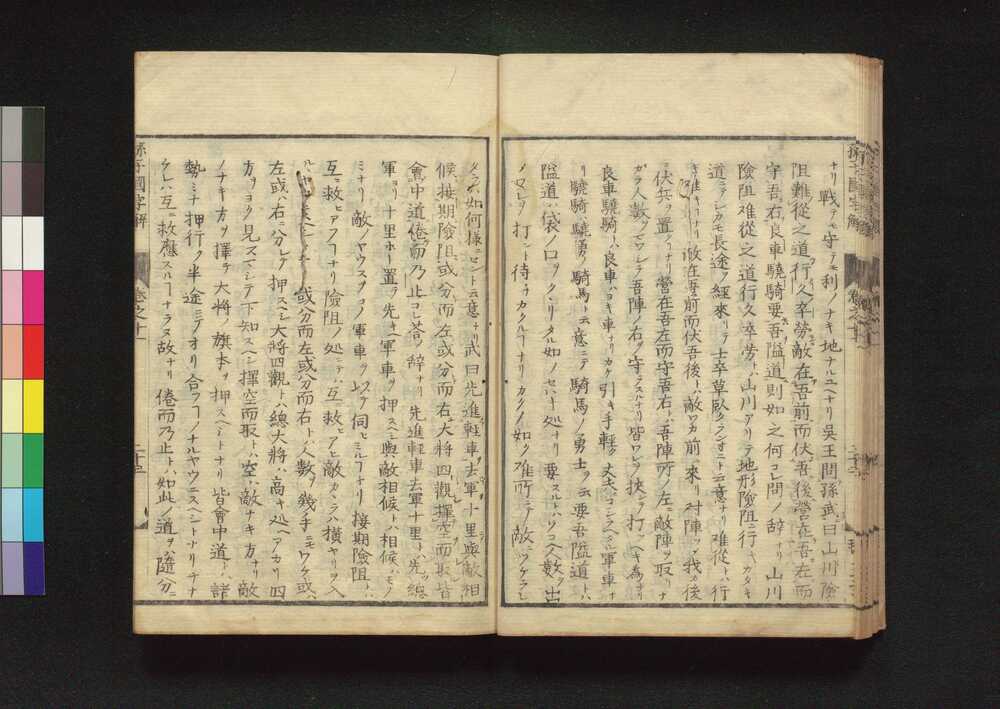 ナリ戦テモ守テモ利ノナキ地ナルユヘナリ吳王問孫武曰山川險
阻難從之道行久卒勞敵在吾前而伏吾後營在吾左而
守吾右良車驍騎要吾隘道則如之何コレ問ノ辞ナリ山川
險阻難從之道行久卒勞トハ山川アリテ地形險阻ニ行キカタキ
道ニテシカモ長途ヲ經來リテ士卒草臥タランオニト云意ナリ難從トハ行
キ難キナリ敵在吾前而伏吾後トハ敵ワカ前ニ來リ対陣シテ我カ後
ニ伏兵ヲ置クナリ營在吾左而守吾右トハ吾陣所ノ左ニ敵陣ヲ取リナ
カラ人數ヲツカワシテ吾陣ノ右ヲ守ラスルナリ皆ワレヲ挾ミ打ツヘキ為ナリ
良車驍騎トハ良車ハヨキ車ナリカク引キ手輕ク丈夫ニコシラヘタル軍車ナ
リ驍騎ハ驍勇ノ騎馬ト云意ニテ騎馬ノ勇士ヲ云要吾隘道トハ
隘道ハ袋ノ口ヲククリタル如クノセハキ処ナリ要スルトハソコヘ人數ヲ出シ
ノマレヲ打ント待ツナリカクノ如ク難所ニテノ敵ニツケラレ
タルハ如何樣ニセント云意ナリ武曰先進輕車去軍十里與敵相
候接期險阻或分而左或分而右大將四觀擇空而取皆
會中道倦而乃止コレ答ノ辞ナリ先進輕車去軍十里トハ先ツ總
軍ヨリ十里ホト置テ先キヘ軍車ヲ押スヘシ與敵相候トハ相候ハモノ
ミナリ敵ノヤウスヲコノ軍車ヲ以テ伺ヒミルナリ接期險阻トハ
互ニ救ヒアフナリ險阻ノ処ニテハ互ニ救ヒアヒ敵カカラハ橫ヤリヲ入
ルル 或分而左或分而右トハ人數ヲ幾手ニモワケテ或ハ
左或ハ右ニ分レテ押スヘシ大將四觀トハ總大將ハ高キ処ヘアカリ四
方ヲヨク見スマシテ下知スヘシ擇空而取トハ空ハ敵ナキ方ナリ敵
ノナキ方ヲ擇テ大將ノ旗本ヲ押スヘシトナリ皆會中道トハ諸
勢ミナ押行ク半途ニテヲチ合フコノナルヤウニスヘシトナリ
クレハ互ニ救應スルコナラヌ故ナリ倦而乃止トハ如此ノ道ヲハ隨分ニ
孫子國字解
卷之十一